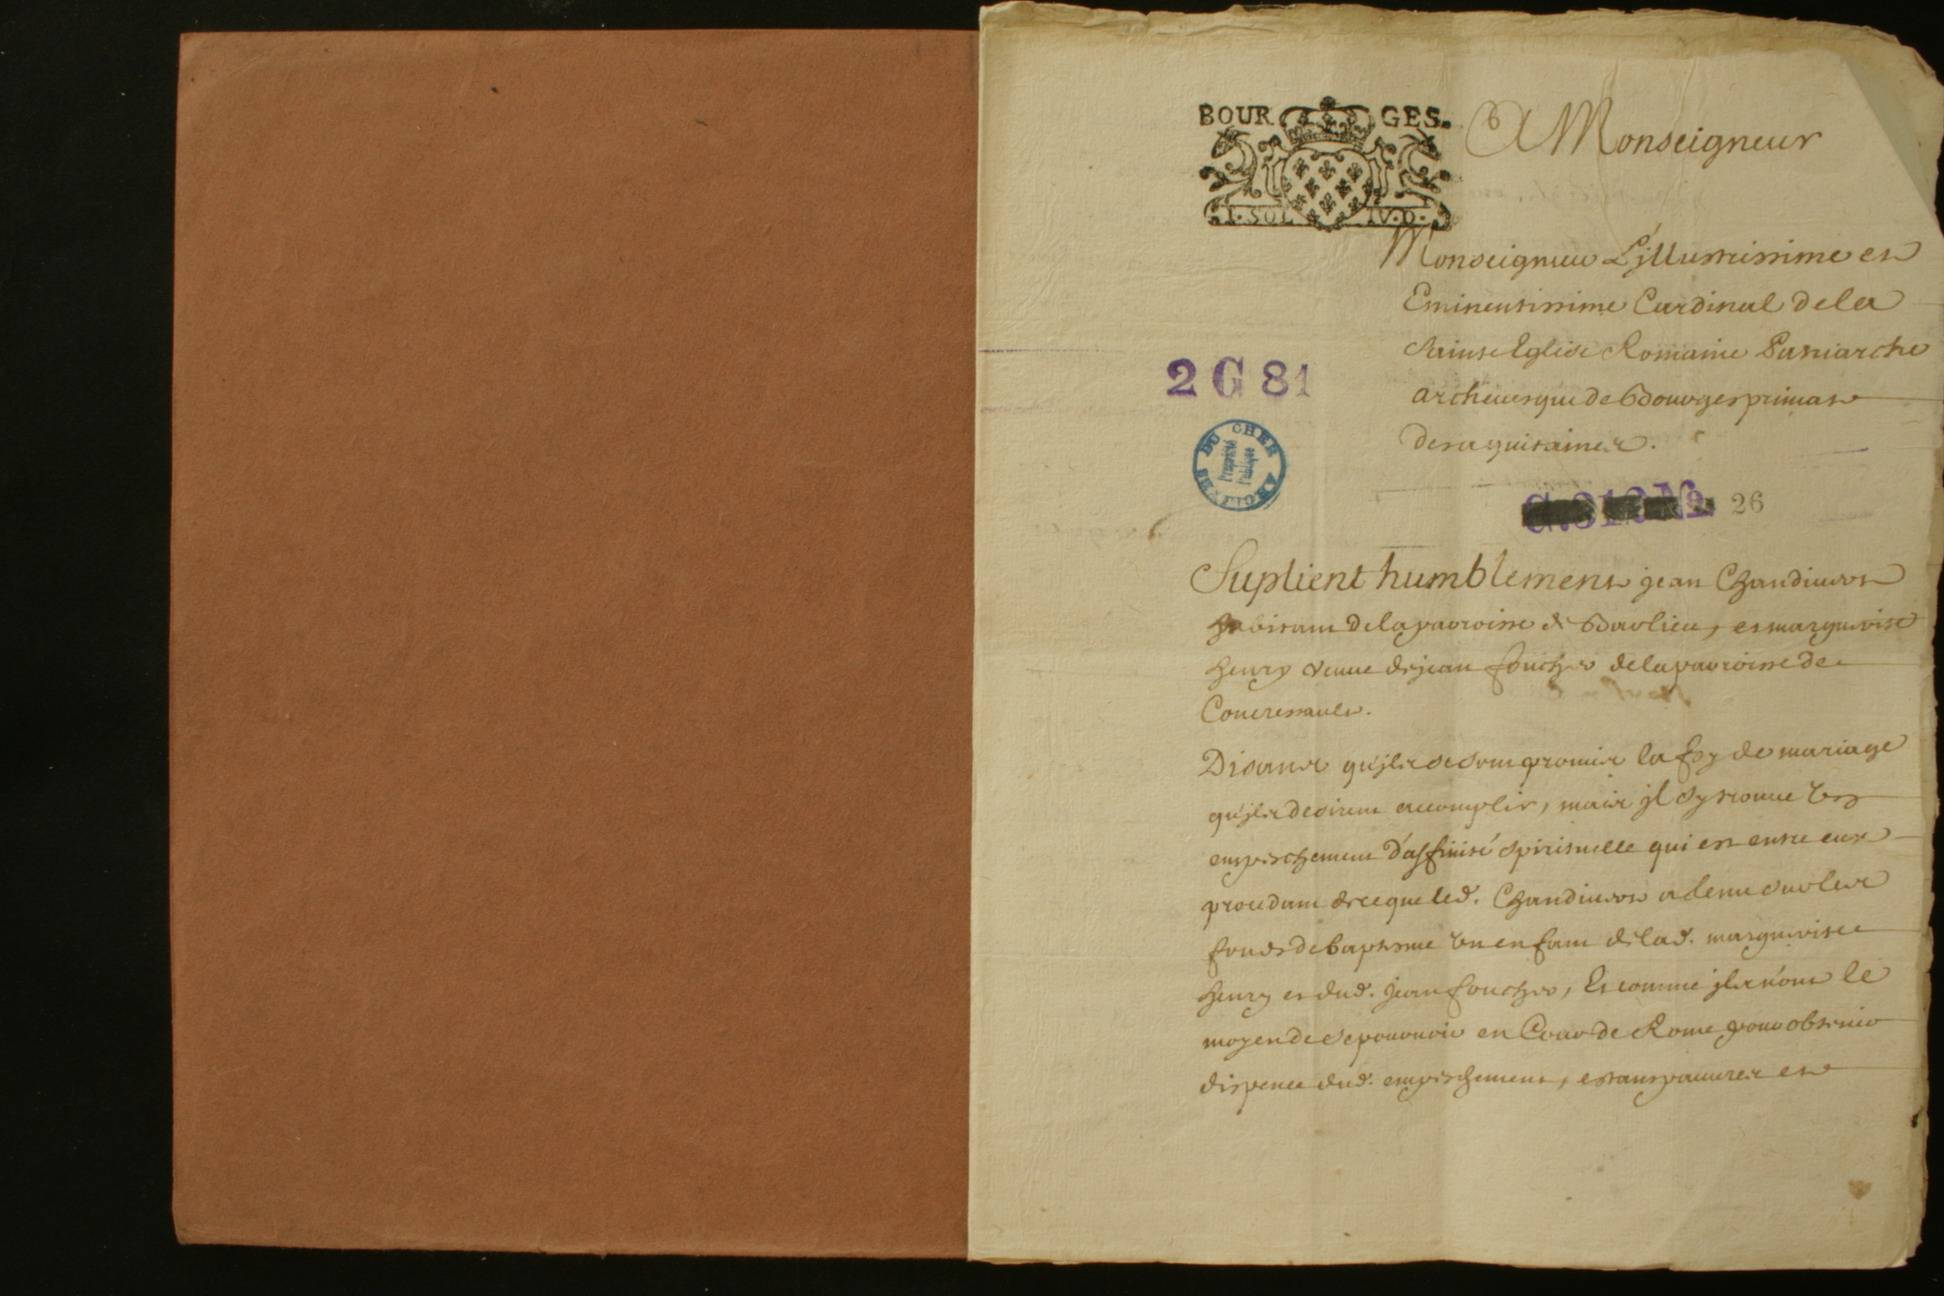 BOURGES.
I·SOL IV·D·
A Monseigneur
Monseigneur L'jllustrissime et
Eminentissime Cardinal de la
Sainte Eglise Romaine Patriarche
archeuesque de Bourges primat
des aquitaines.
2 G 81
ARCHIVES DU CHER
Propriété
Publique
G.813 No 26
Suplient humblement jean Chandiuron
habitant de la parroisse de Barlieu, et marguerite
henry veuue de jean foucher de la parroisse de
Concressault.
Disants qu'jls se sont promis la foy de mariage
qu'jls desirent accomplir, mais jl s'y trouue un
empeschement d'affinité spirituelle qui est entre eux
procedant de ce que led. Chandiuron a tenu sur les
fonds de baptesme un enfant de lad. marguerite
henry et dud. jean foucher, Et comme jls n'ont le
moyen de se pouruoir en Cour de Rome pour obtenir
dispence dud. empeschement, estans pauures et